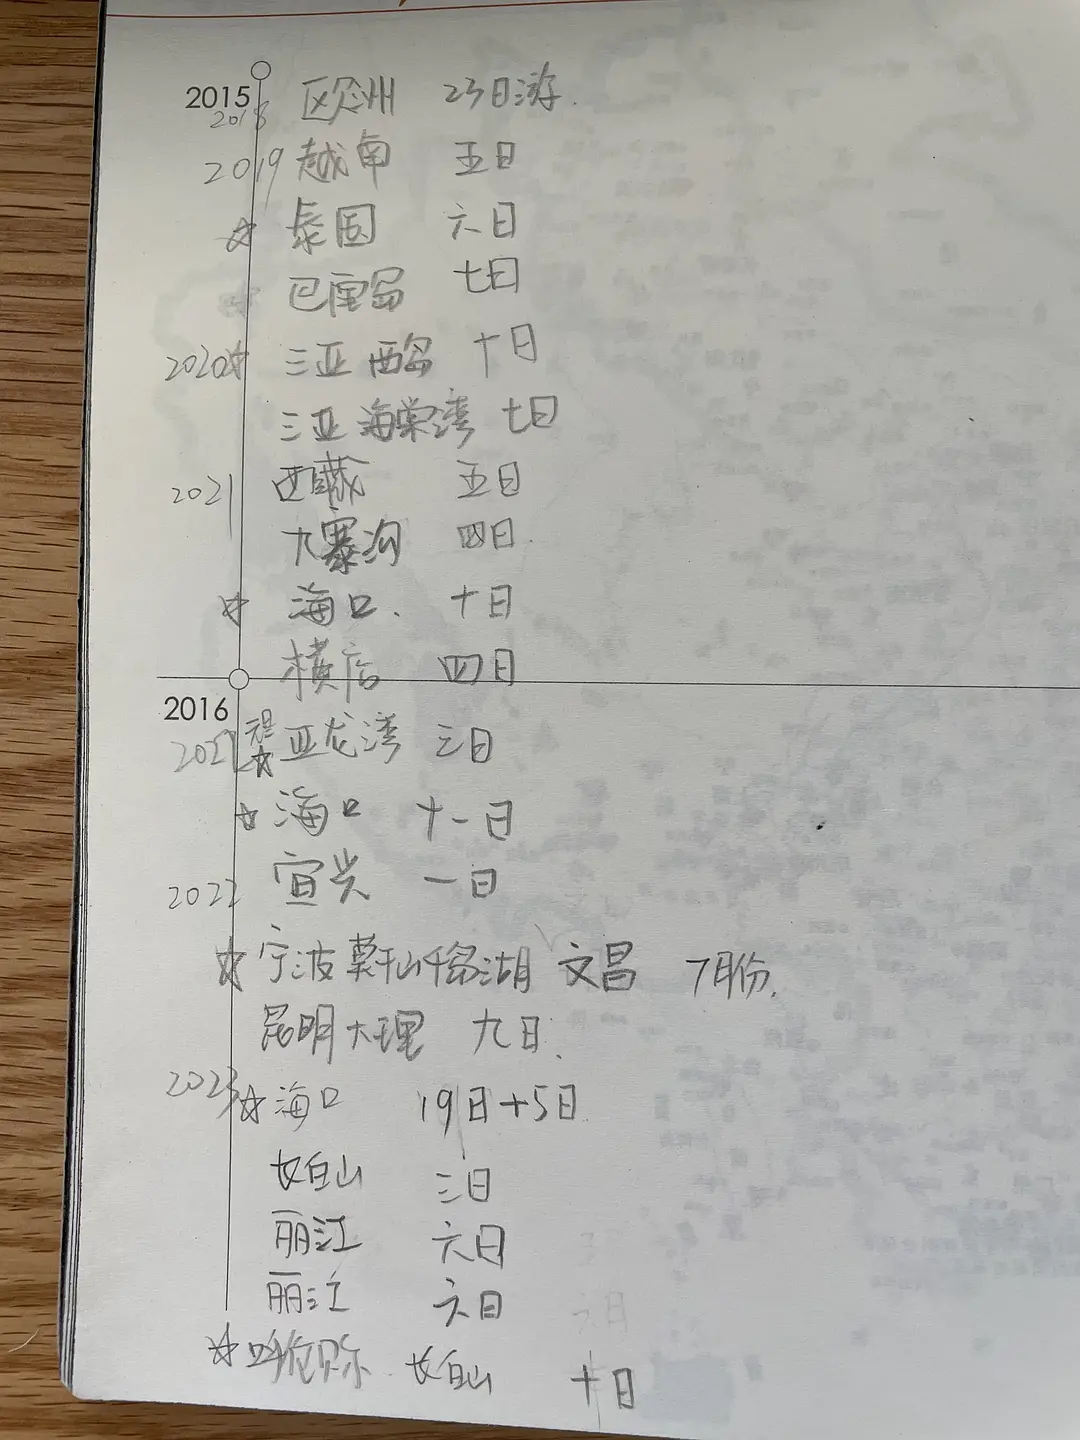 2015
2018 欧州 23日游.
2019 越南 五日
☆ 泰国 六日
巴厘岛 七日
2020☆ 三亚 西岛 十日
三亚 海棠湾 七日
2021 西藏 五日
九寨沟 四日.
☆ 海口. 十日
横店 四日
2016
2021 ☆ 亚龙湾 三日
☆ 海口 十一日
2022 宜兴 一日
☆ 宁波 莫干山 千岛湖 文昌 7月份.
昆明大理 九日.
2023 ☆ 海口 19日+5日
长白山 三日
丽江 六日
丽江 六日
☆ 呼伦贝尔 长白山 十日